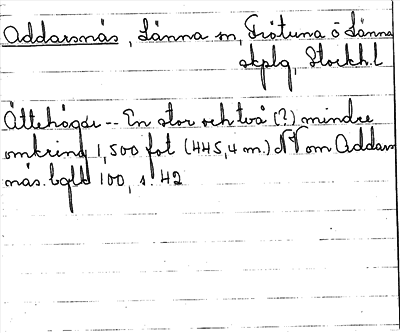 Addarsnäs, Länna sn, Frötuna o Länna
skplg, Stockh. l
Ättehögar -- En stor och två (?) mindre
omkring 1,500 fot (445,4 m.) NV om Addars
näs. bgld 100, s. 42